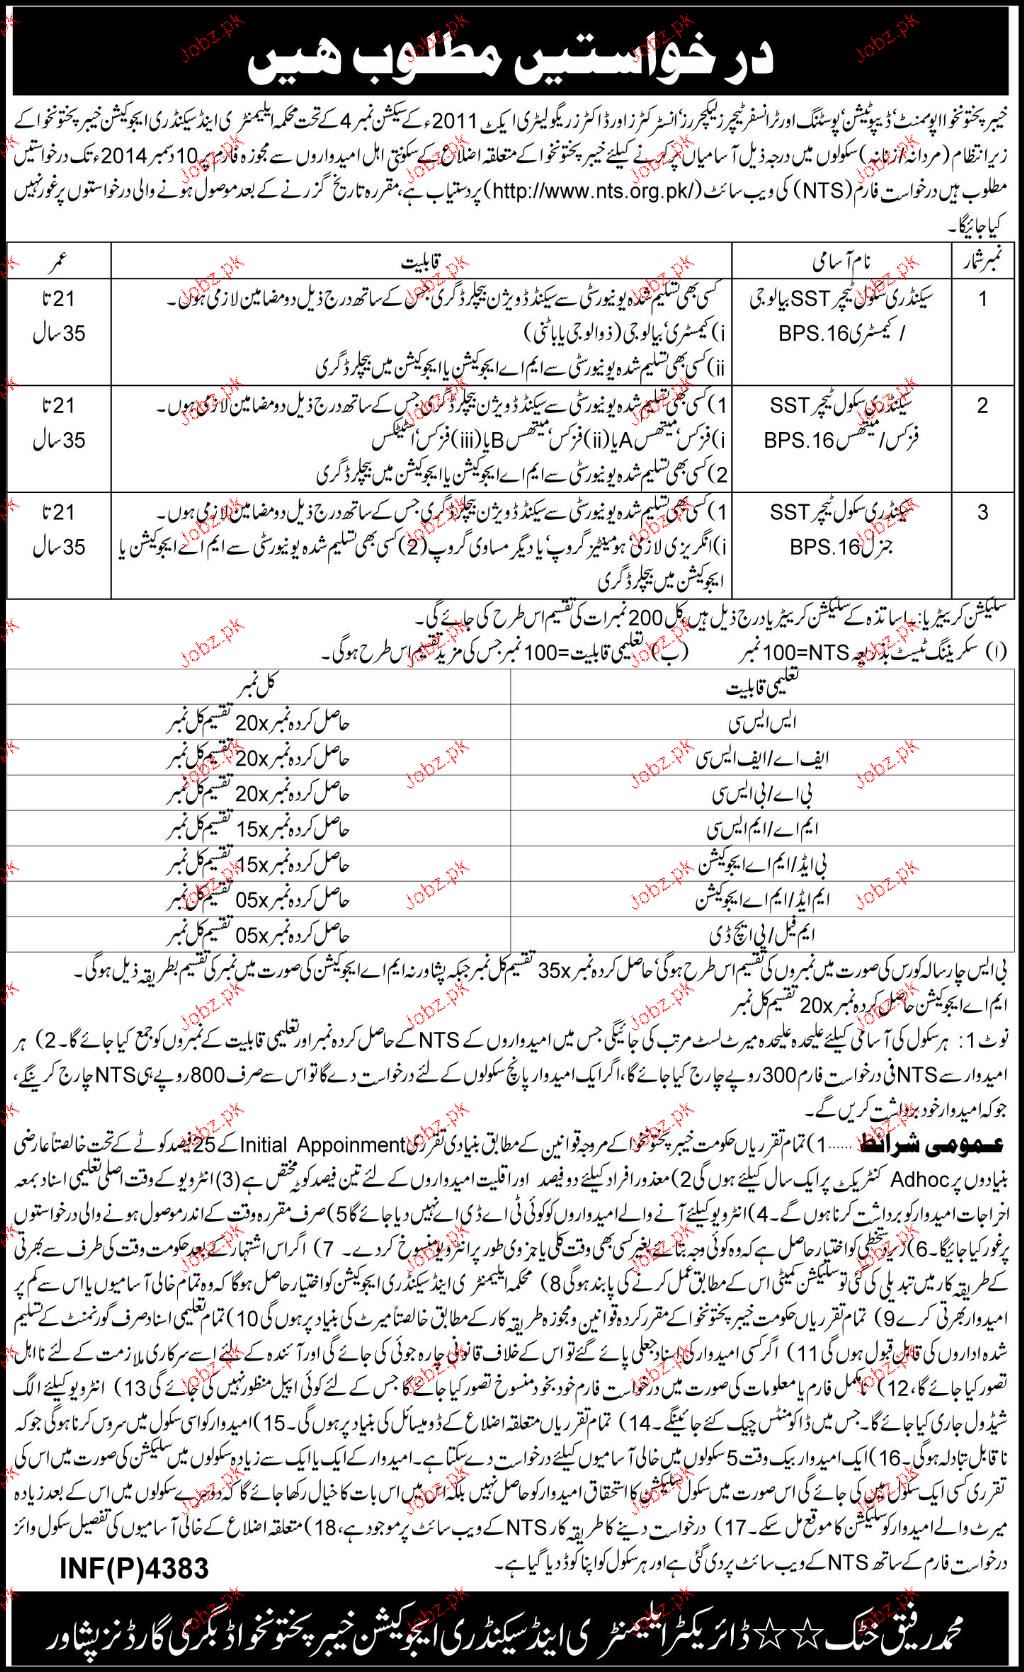 درخواستیں مطلوب ھیں
خیبر پختونخوا اپوائمنٹ، ڈیپوٹیشن، پوسٹنگ اور ٹرانسفر ٹیچرز، لیکچررز، انسٹرکٹرز اور ڈاکٹرز ریگولیٹری ایکٹ 2011ء کے سیکشن نمبر 4 کے تحت محکمہ ایلیمنٹری اینڈ سیکنڈری ایجوکیشن خیبر پختونخوا کے
زیر انتظام (مردانہ/زنانہ) سکولوں میں درجہ ذیل آسامیاں پر کرنے کیلئے خیبر پختونخوا کے متعلقہ اضلاع کے سکونتی اہل امیدواروں سے مجوزہ فارم پر 10 دسمبر 2014ء تک درخواستیں
مطلوب ہیں درخواست فارم (NTS) کی ویب سائٹ (http://www.nts.org.pk/) پر دستیاب ہے، مقررہ تاریخ گزرنے کے بعد موصول ہونے والی درخواستوں پر غور نہیں
کیا جائیگا۔
نمبر شمار نام آسامی قابلیت عمر
1 سیکنڈری سکول ٹیچر SST بیالوجی کسی بھی تسلیم شدہ یونیورسٹی سے سیکنڈ ڈویژن بیچلر ڈگری جس کے ساتھ درج ذیل دو مضامین لازمی ہوں۔ 21 تا
/ کیمسٹری BPS.16 i) کیمسٹری، بیالوجی (ذوالوجی یا باٹنی) 35 سال
ii) کسی بھی تسلیم شدہ یونیورسٹی سے ایم اے ایجوکیشن یا ایجوکیشن میں بیچلر ڈگری
2 سیکنڈری سکول ٹیچر SST 1) کسی بھی تسلیم شدہ یونیورسٹی سے سیکنڈ ڈویژن بیچلر ڈگری جس کے ساتھ درج ذیل دو مضامین لازمی ہوں۔ 21 تا
فزکس/میتھس BPS.16 i) فزکس، میتھس A یا (ii) فزکس، میتھس B یا (iii) فزکس، سٹیٹکس 35 سال
2) کسی بھی تسلیم شدہ یونیورسٹی سے ایم اے ایجوکیشن یا ایجوکیشن میں بیچلر ڈگری
3 سیکنڈری سکول ٹیچر SST 1) کسی بھی تسلیم شدہ یونیورسٹی سے سیکنڈ ڈویژن بیچلر ڈگری جس کے ساتھ درج ذیل دو مضامین لازمی ہوں۔ 21 تا
جنرل BPS.16 i) انگریزی لازمی، ہومینٹیز گروپ، یا دیگر مساوی گروپ (2) کسی بھی تسلیم شدہ یونیورسٹی سے ایم اے ایجوکیشن یا 35 سال
ایجوکیشن میں بیچلر ڈگری
سلیکشن کرییٹریا:۔ اساتذہ کے سلیکشن کرییٹریا درج ذیل ہیں، کل 200 نمبرات کی تقسیم اس طرح کی جائے گی۔
(ا) سکریننگ ٹیسٹ بذریعہ NTS=100 نمبر (ب) تعلیمی قابلیت =100 نمبر جس کی مزید تقسیم اس طرح ہوگی۔
تعلیمی قابلیت کل نمبر
ایس ایس سی حاصل کردہ نمبر 20x تقسیم کل نمبر
ایف اے/ایف ایس سی حاصل کردہ نمبر 20x تقسیم کل نمبر
بی اے/بی ایس سی حاصل کردہ نمبر 20x تقسیم کل نمبر
ایم اے/ایم ایس سی حاصل کردہ نمبر 15x تقسیم کل نمبر
بی ایڈ/ایم اے ایجوکیشن حاصل کردہ نمبر 15x تقسیم کل نمبر
ایم ایڈ/ایم اے ایجوکیشن حاصل کردہ نمبر 05x تقسیم کل نمبر
ایم فیل/پی ایچ ڈی حاصل کردہ نمبر 05x تقسیم کل نمبر
بی ایس چار سالہ کورس کی صورت میں نمبروں کی تقسیم اس طرح ہوگی، حاصل کردہ نمبر 35x تقسیم کل نمبر جبکہ پشاورنہ ایم اے ایجوکیشن کی صورت میں نمبر کی تقسیم بطریقہ ذیل ہوگی۔
ایم اے ایجوکیشن حاصل کردہ نمبر 20x تقسیم کل نمبر
نوٹ 1: ہر سکول کی آسامی کیلئے علیحدہ علیحدہ میرٹ لسٹ مرتب کی جائیگی جس میں امیدواروں کے NTS کے حاصل کردہ نمبر اور تعلیمی قابلیت کے نمبروں کو جمع کیا جائے گا۔ 2) ہر
امیدوار سے NTS فی درخواست فارم 300 روپے چارج کیا جائے گا، اگر ایک امیدوار پانچ سکولوں کے لئے درخواست دے گا تو اس سے صرف 800 روپے ہی NTS چارج کرینگے،
جو کہ امیدوار خود برداشت کریں گے۔
عمومی شرائط ..... 1) تمام تقرریاں حکومت خیبر پختونخوا کے مروجہ قوانین کے مطابق بنیادی تقرری Initial Appoinment کے 25 فیصد کوٹے کے تحت خالصتاً عارضی
بنیادوں پر Adhoc کنٹریکٹ پر ایک سال کیلئے ہوں گی 2) معذور افراد کیلئے دو فیصد اور اقلیت امیدواروں کے لئے تین فیصد کوٹہ مختص ہے (3) انٹرویو کے وقت اصلی تعلیمی اسناد بمعہ
اخراجات امیدوار کو برداشت کرنا ہوں گے۔ 4) انٹرویو کیلئے آنے والے امیدواروں کو کوئی ٹی اے ڈی اے نہیں دیا جائے گا 5) صرف مقررہ وقت کے اندر موصول ہونے والی درخواستوں
پر غور کیا جائیگا۔ 6) زیر دستخطی کو اختیار حاصل ہے کہ وہ کوئی وجہ بتائے بغیر کسی بھی وقت کلی یا جزوی طور پر انٹرویو منسوخ کر دے۔ 7) اگر اس اشتہار کے بعد حکومت وقت کی طرف سے بھرتی
کے طریقہ کار میں تبدیلی کی گئی تو سلیکشن کمیٹی اس کے مطابق عمل کرنے کی پابند ہوگی 8) محکمہ ایلیمنٹری اینڈ سیکنڈری ایجوکیشن کو اختیار حاصل ہوگا کہ وہ تمام خالی آسامیوں یا اس سے کم پر
امیدوار بھرتی کرے 9) تمام تقرریاں حکومت خیبر پختونخوا کے مقرر کردہ قوانین و مجوزہ طریقہ کار کے مطابق خالصتاً میرٹ کی بنیاد پر ہوں گی 10) تمام تعلیمی اسناد صرف گورنمنٹ کے تسلیم
شدہ اداروں کی قابل قبول ہوں گی 11) اگر کسی امیدوار کی اسناد جعلی پائے گئے تو اس کے خلاف قانونی چارہ جوئی کی جائے گی اور آئندہ کے لئے اسے سرکاری ملازمت کے لئے نااہل
تصور کیا جائے گا، 12) نامکمل فارم یا معلومات کی صورت میں درخواست فارم خود بخود منسوخ تصور کیا جائے گا جس کے لئے کوئی اپیل منظور نہیں کی جائے گی 13) انٹرویو کیلئے الگ
شیڈول جاری کیا جائے گا۔ جس میں ڈاکومنٹس چیک کئے جائینگے۔ 14) تمام تقرریاں متعلقہ اضلاع کے ڈومیسائل کی بنیاد پر ہوں گی۔ 15) امیدوار کو اسی سکول میں سروس کرنا ہوگی جو کہ
ناقابل تبادلہ ہوگی۔ 16) ایک امیدوار بیک وقت 5 سکولوں میں خالی آسامیوں کیلئے درخواست دے سکتا ہے۔ امیدوار کے ایک یا ایک سے زیادہ سکولوں میں سلیکشن کی صورت میں اس کی
تقرری کسی ایک سکول میں کی جائے گی اس صورت میں سکول سلیکشن کا استحقاق امیدوار کو حاصل نہیں بلکہ اس میں اس بات کا خیال رکھا جائے گا کہ دوسرے سکولوں میں اس کے بعد زیادہ
میرٹ والے امیدوار کو سلیکشن کا موقع مل سکے۔ 17) درخواست دینے کا طریقہ کار NTS کے ویب سائٹ پر موجود ہے، 18) متعلقہ اضلاع کے خالی آسامیوں کی تفصیل سکول وائز
درخواست فارم کے ساتھ NTS کے ویب سائٹ پر دی گئی ہے اور ہر سکول کو اپنا کوڈ دیا گیا ہے۔ INF(P)4383
محمد رفیق خٹک ☆☆ ڈائریکٹر ایلیمنٹری اینڈ سیکنڈری ایجوکیشن خیبر پختونخوا ڈبگری گارڈنز پشاور